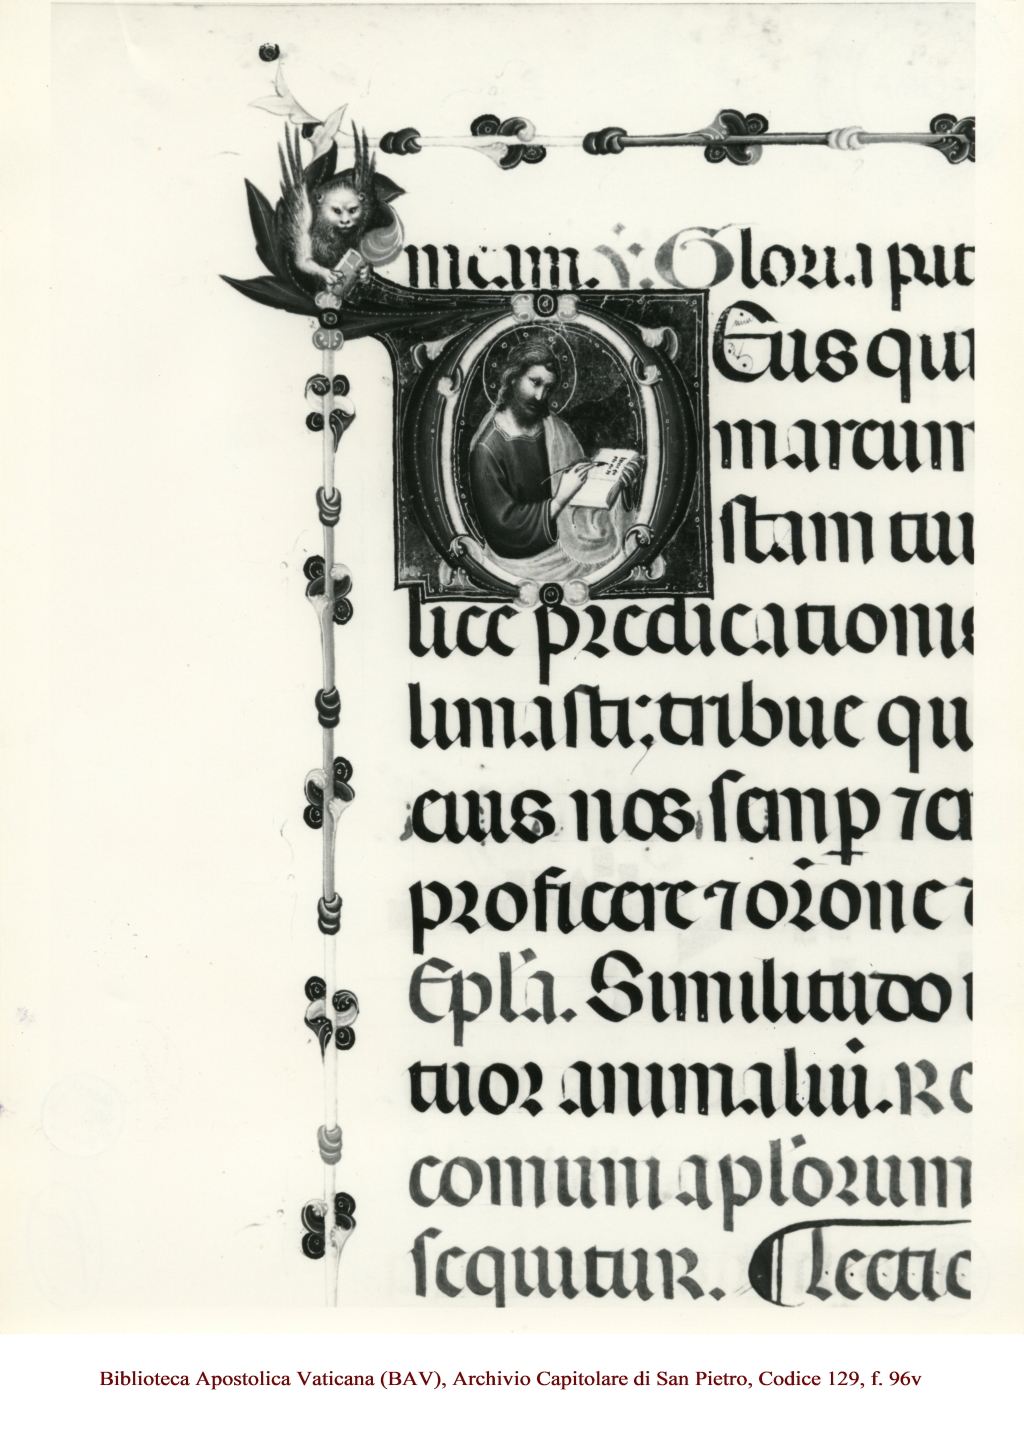 meam. ℣. Gloria pat
Deus qui
marcum
stam tuu
lice predicationis
limasti; tribue qu
eius nos semꝑ ⁊ e
proficere ⁊ or̄one
Epl̄a. Similitudo
tuor animaliū. Re
comuni apl̄orum
sequitur. ¶ Lectio
Biblioteca Apostolica Vaticana (BAV), Archivio Capitolare di San Pietro, Codice 129, f. 96v